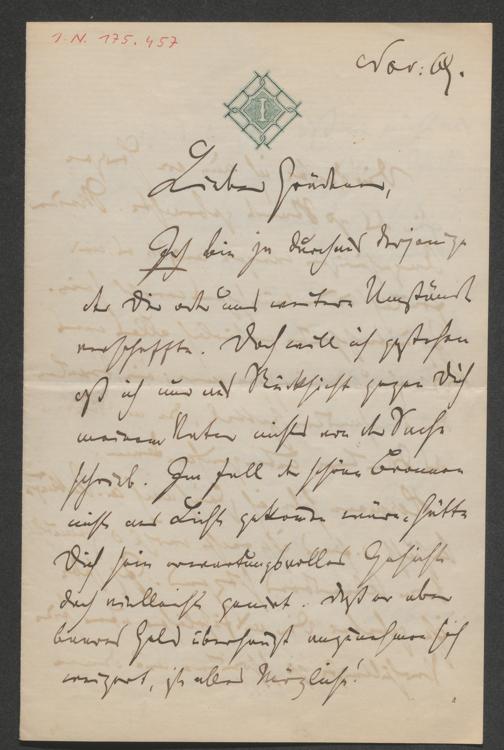 I.N. 175.457
Nov: 69.
I
Lieber
Ich bin ja durchaus derjenige
der Dir oder uns weitere Umstände
verschaffte. Doch will ich gestehen
daß ich nur aus Rücksicht gegen Dich
meinem Vater nichts von der Sache
schrieb. Im Fall der schöne Brennen
nicht ans Licht gekommen wäre, hätte
Dich sein erwartungsvolles Gesicht
doch vielleicht genirt. Daß er aber
baares Geld überhaupt anzunehmen sich
weigert, ist alles Mögliche!